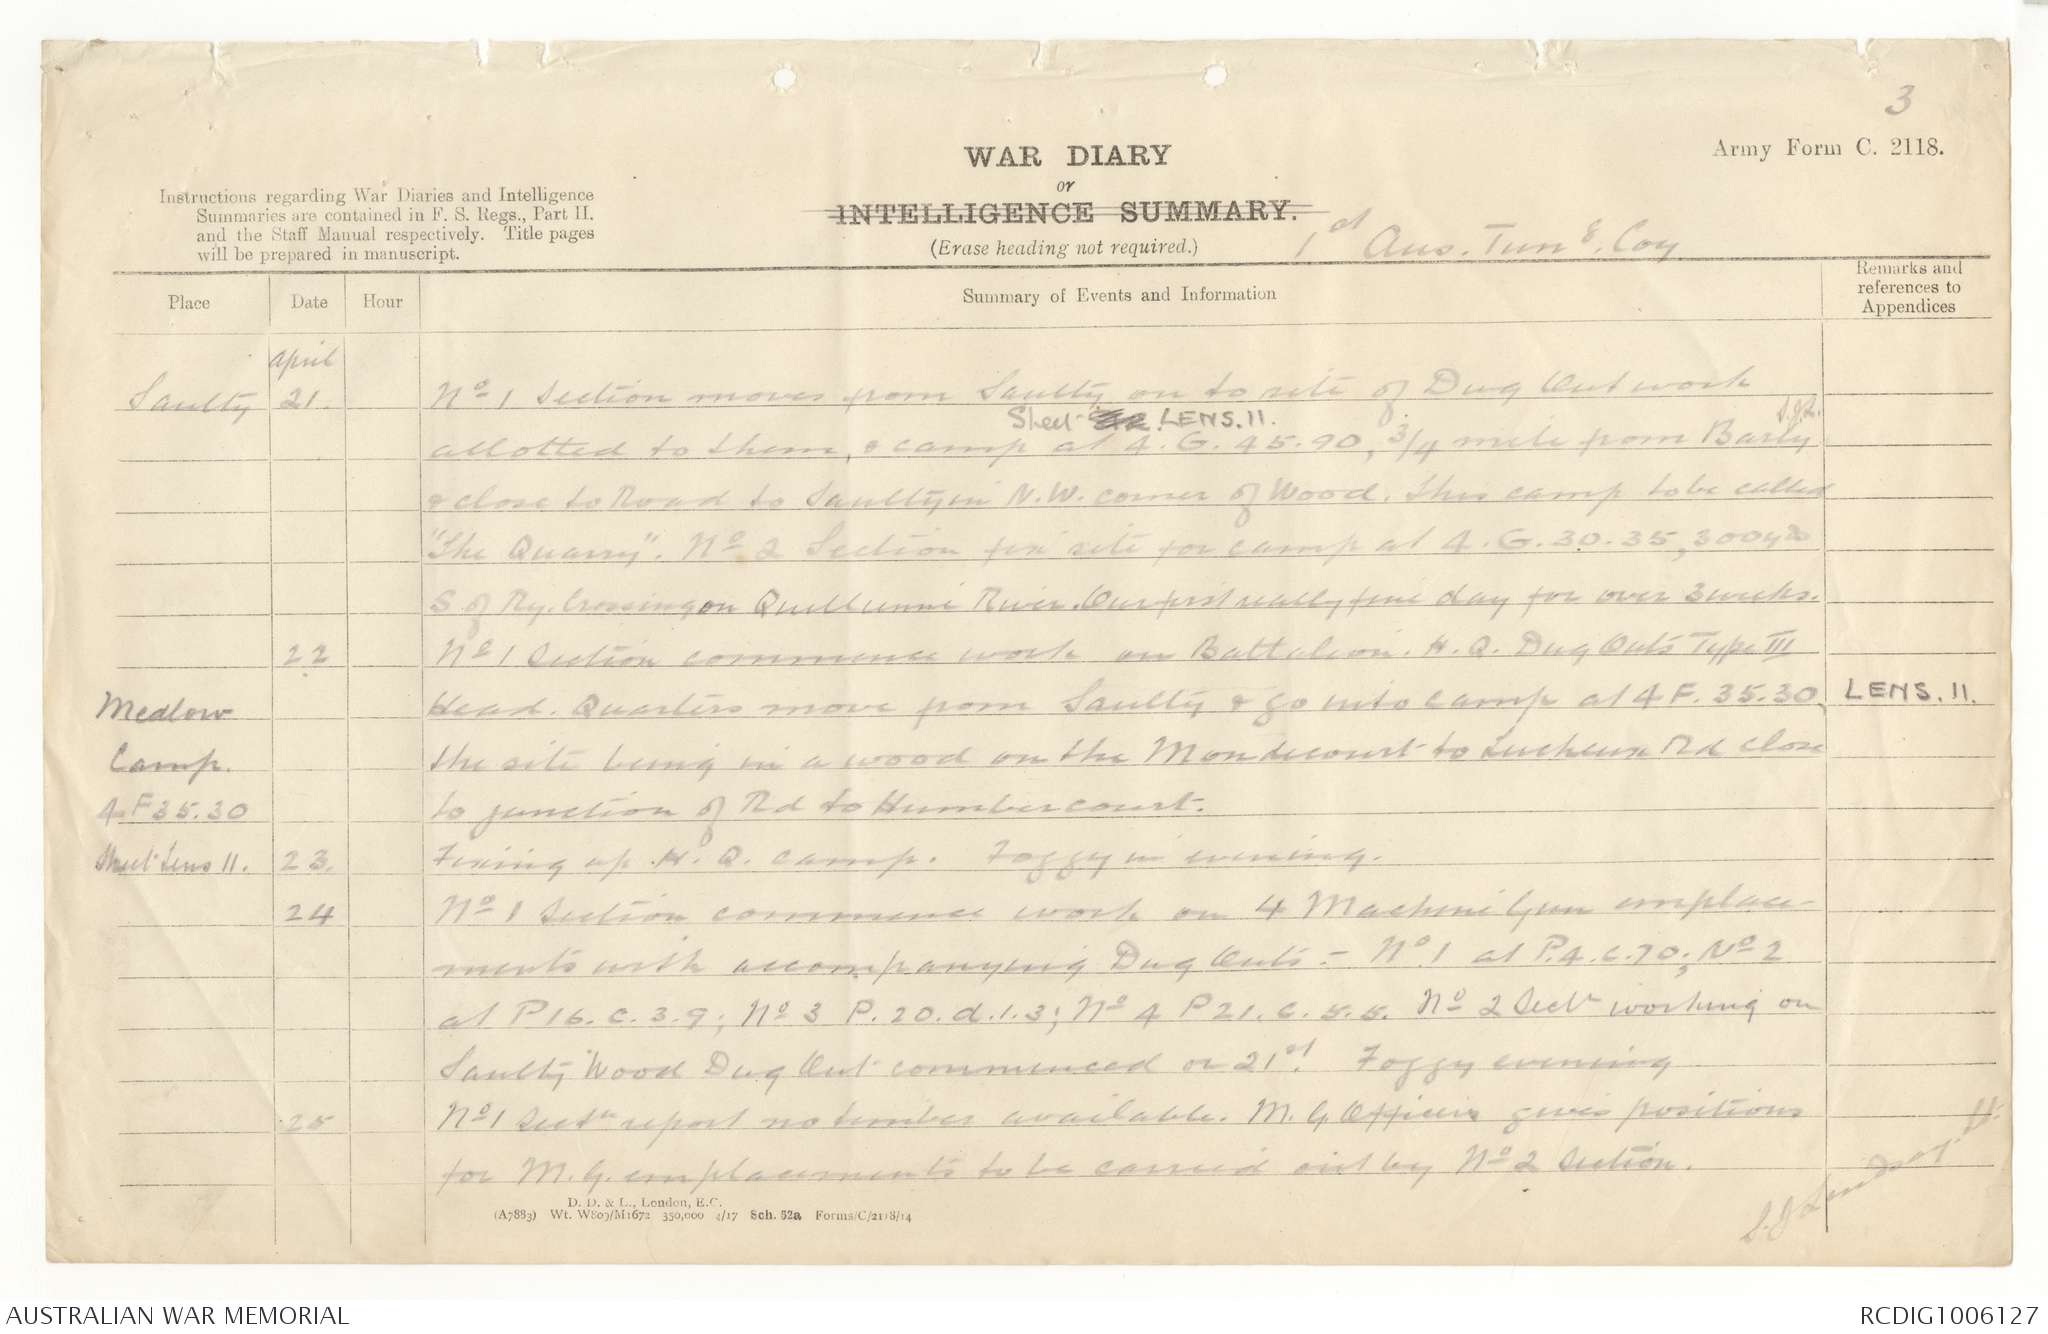 3
Army Form C. 2118.
WAR DIARY
or
INTELLIGENCE SUMMARY.
(Erase heading not required.)
1st Aus. Tung. Coy
Instructions regarding War Diaries and Intelligence
Summaries are contained in F. S. Regs., Part II.
and the Staff Manual respectively. Title pages
will be prepared in manuscript.
Place Date Hour Summary of Events and Information Remarks and references to Appendices
April
Saulty 21. No 1 Section moves from Saulty on to site of Dug Out work
Sheet LENS. 11. S.J.L.
allotted to them, & camp at 4. G. 45.90, 3/4 mile from Barly
& close to Road to Saulty in N.W. corner of Wood. This camp to be called
"The Quarry". No 2 Section fix site for camp at 4. G. 30.35, 300 yds
S of Ry. Crossing on River. Our first really fine day for over 3 weeks.
22 No 1 Section commence work on Battalion. H. Q. Dug Outs Type III
Medlow Head. Quarters move from Saulty & go into camp at 4 F. 35.30, LENS. 11.
Camp. the site being in a wood on the Mondecourt to Lucheux Rd close
4 F 35.30 to junction of Rd to Humbercourt.
Sheet Lens 11. 23. Fixing up H. Q. camp. Foggy in evening.
24 No 1 Section commence work on 4 Machine Gun emplace-
ments with accompanying Dug Outs - No. 1 at P.4.c.70; No 2
at P16. c. 3.9; No 3 P. 20. d. 1.3; No 4 P21. c. 5.5. No 2 Sectn working on
Saulty Wood Dug Out commenced on 21st. Foggy evening
25 No 1 Sectn report no timber available. M. G. Officer gives positions
for M. G. emplacements to be carried out by No 2 Section.
D. D. & L., London, E.C.
(A7883) Wt. W809/M1672 350,000 4/17 Sch. 52a Forms/C/2118/14
AUSTRALIAN WAR MEMORIAL
RCDIG1006127